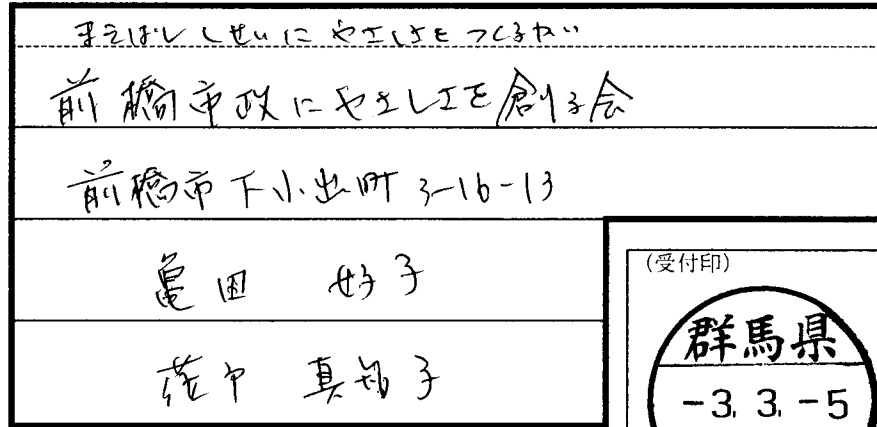 まえばししせいにやさしさをつくるかい
前橋市政にやさしさを創る会
前橋市下小出町3-16-13
亀田 好子
真知子
(受付印)
群馬県
-3.3.-5